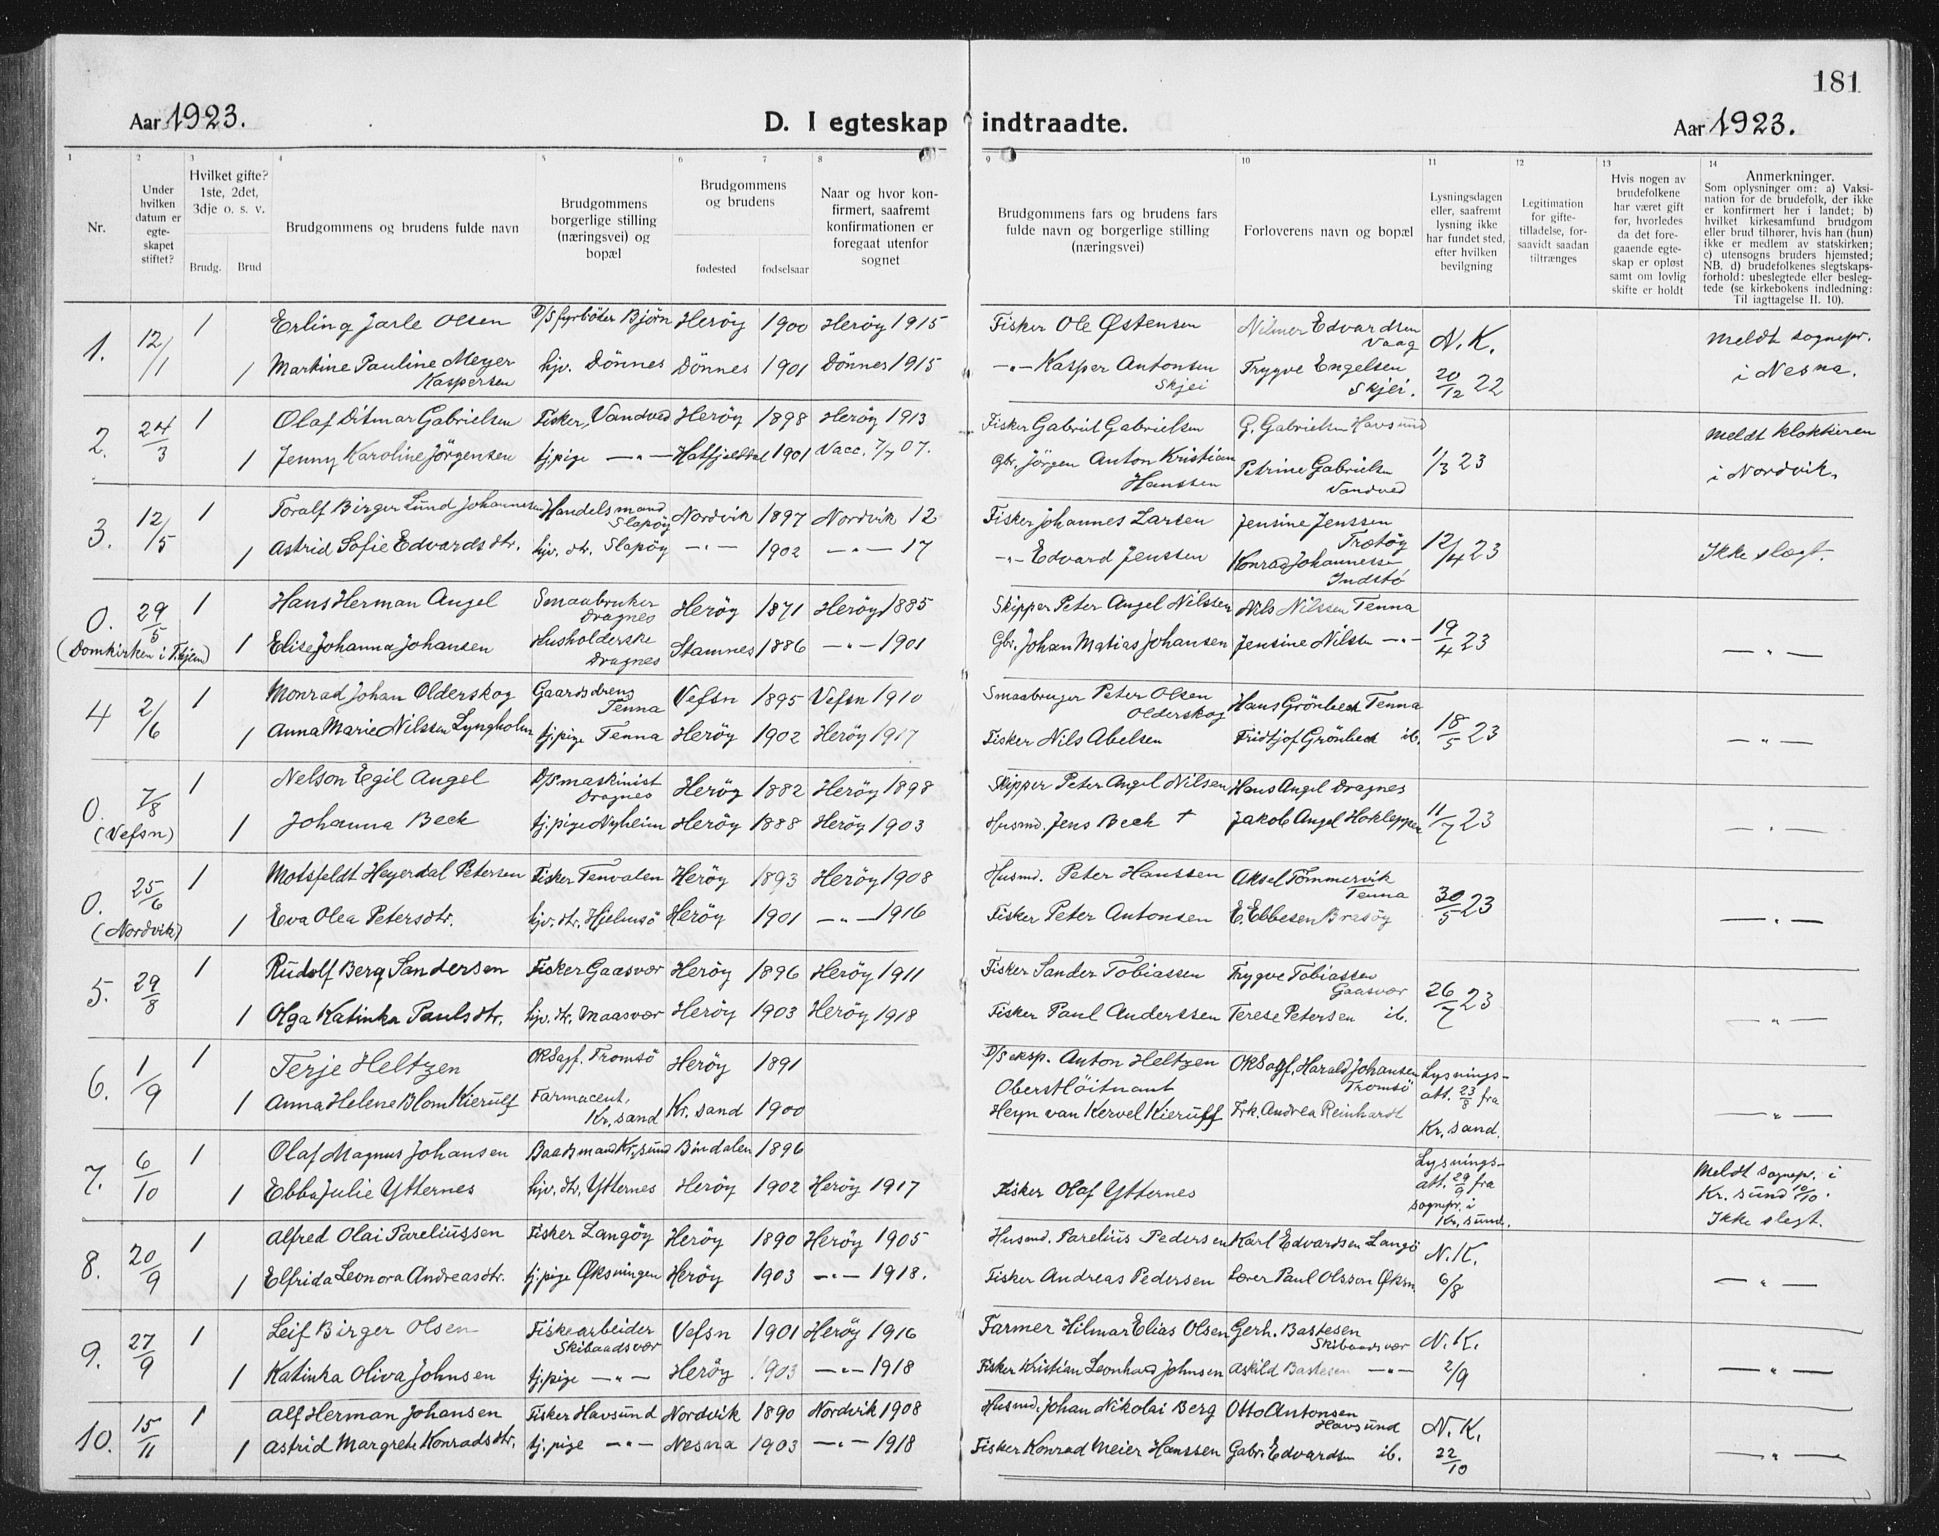 181
Aar 1923.
D. I egteskap indtraadte.
Aar 1923.
1 2 3 4 5 6 7 8 9 10 11 12 13 14
Nr.
Under hvilken datum er egte-skapet stiftet?
Hvilket gifte? 1ste, 2det, 3dje o. s. v.
Brudg. Brud
Brudgommens og brudens fulde navn
Brudgommens borgerlige stilling (næringsvei) og bopæl
Brudgommens og brudens
fødested fødselsaar
Naar og hvor kon-firmert, saafremt konfirmationen er foregaat utenfor sognet
Brudgommens fars og brudens fars fulde navn og borgerlige stilling (næringsvei)
Forloverens navn og bopæl
Lysningsdagen eller, saafremt lysning ikke har fundet sted, efter hvilken bevilgning
Legitimation for gifte-tilladelse, for-saavidt saadan tiltrænges
Hvis nogen av brudefolkene har været gift før, hvorledes da det fore-gaaende egte-skap er opløst samt om lovlig skifte er holdt
Anmerkninger.
Som oplysninger om: a) Vaksi-nation for de brudefolk, der ikke er konfirmert her i landet; b) hvilket kirkesamfund brudgom eller brud tilhører, hvis han (hun) ikke er medlem av statskirken; c) utensogns bruders hjemsted; NB. d) brudefolkenes slegtskaps-forhold: ubeslegtede eller besleg-tede (se kirkebokens indledning: Til iagttagelse II. 10).
1. 12/1 1 Erling Jarle Olsen D/S fyrböter Bjørn Herøy 1900 Herøy 1915 Fisker Ole Østensen Nilmer Edvardsen Vaag N. K. meldt sognepr.
1 Martine Pauline Meyer Kaspersen hjv. Dönnes Dönnes 1901 Dönnes 1915 -"- Kasper Antonsen Skjei Trygve Engelsen Skjei. 20/12 22 i Nesna.
2. 24/3 1 Olaf Ditmar Gabrielsen Fisker, Vandved Herøy 1898 Herøy 1913 Fisker Gabriel Gabrielsen G. Gabrielsen Havsund meldt klokkeren
1 Jenny Karoline Jörgensen tj.pige -"- Hatfjelddal 1901 Vacc. 7/7 07. Gbr. Jörgen Anton Kristian Hanssen Petrine Gabrielsen Vandved 1/3 23 i Nordvik.
3. 12/5 1 Toralf Birger Lund Johannesen Handelsmand Slapöy Nordvik 1897 Nordvik 12 Fisker Johannes Larsen Jensine Jenssen Trætöy 12/4 23
1 Astrid Sofie Edvardsdtr. hjv. dtr. Slapöy -"- 1902 -"- 17 -"- Edvard Jenssen Konrad Johannessen Indstö Ikke slegt.
0. 29/5 1 Hans Herman Angel Smaabruker Dragnes Herøy 1871 Herøy 1885 Skipper Peter Angel Nilssen Nils Nilssen Tenna
(Domkirken i T.hjem) 1 Elise Johanna Johansen Husholderske Dragnes Stamnes 1886 -"- 1901 Gbr. Johan Matias Johansen Jensine Nilsen -"- 19/4 23 -"-
4 2/6 1 Monrad Johan Olderskog Gaardsdreng Tenna Vefsn 1895 Vefsn 1910 Smaabruger Peter Olsen Olderskog Hans Grönbech Tenna
1 Anna Marie Nilssen Lyngholm tj.pige Tenna Herøy 1902 Herøy 1917 Fisker Nils Abelsen Fridtjof Grönbech ib. 18/5 23 -"-
0. 7/8 1 Nelson Egil Angel D/S maskinist Dragnes Herøy 1882 Herøy 1898 Skipper Peter Angel Nilsen Hans Angel Dragnes
(Vefsn) 1 Johanna Beck tj.pige Nyheim Herøy 1888 Herøy 1903 Husmd. Jens Beck + Jakob Angel Hokleppen 11/7 23 -"-
0. 25/6 1 Motsfeldt Heyerdal Petersen Fisker Tenvalen Herøy 1893 Herøy 1908 Husmd. Peter Hanssen Aksel Tömmervik Tenna
(Nordvik) 1 Eva Olea Petersdtr. hjv. dtr. Hjelmsö Herøy 1901 -"- 1916 Fisker Peter Antonsen E. Ebbesen Brasöy 30/5 23 -"-
5. 29/8 1 Rudolf Berg Sandersen Fisker Gaasvær Herøy 1896 Herøy 1911 Fisker Sander Tobiassen Trygve Tobiassen Gaasvær
1 Olga Katinka Paulsdtr. hjv. dtr. Maasvær Herøy 1903 Herøy 1918 Fisker Paul Anderssen Terese Petersen ib. 26/7 23 -"-
6. 1/9 1 Terje Heltzen OR Sagf. Tromsö Herøy 1891 D/S eksp. Anton Heltzen OR Sagf. Harald Johansen Tromsö Lysnings-att. 23/8 fra Kr. sand.
1 Anna Helene Blom Kierulf Farmacent, Kr. sand Kr. sand 1900 Oberstlöitnant Heyn van Kervel Kierulff Frk. Andrea Reinhardt -"-
7. 6/10 1 Olaf Magnus Johansen Baadsmand Kr.sund Bindalen 1896 Lysnings-att. 29/9 fra sognepr. i Kr. sund. Meldt sognepr. i Kr. sund 10/10.
1 Ebba Julie Ytternes hjv. dtr. Ytternes Herøy 1902 Herøy 1917 Fisker Olaf Ytternes Ikke slegt.
8. 20/9 1 Alfred Olai Pareliussen Fisker Langöy Herøy 1890 Herøy 1905 Husmd. Parelius Pedersen Karl Edvardsen Langö N. K.
1 Elfrida Leonora Andreasdtr. tj.pige Øksningen Herøy 1903 -"- 1918. Fisker Andreas Pedersen Lærer Paul Olsson Øksn. 6/8 -"-
9. 27/9 1 Leif Birger Olsen Fiskearbeider Skibaadsvær Vefsn 1901 Herøy 1916 Farmer Hilmar Elias Olsen Gerh. Bastesen Skibaadsvær N. K.
1 Katinka Oliva Johnsen tj.pige -"- Herøy 1903 -"- 1918 Fisker Kristian Leonhard Johnsen Askild Bastesen -"- 2/9 -"-
10. 15/11 1 Alf Herman Johansen Fisker Havsund Nordvik 1890 Nordvik 1908 Husmd. Johan Nikolai Berg Otto Antonsen Havsund N. K.
1 Astrid Margrete Konradsdtr. tj.pige -"- Nesna 1903 -"- 1918 Fisker Konrad Meier Hanssen Gabr. Edvardsen ib. 22/10 -"-